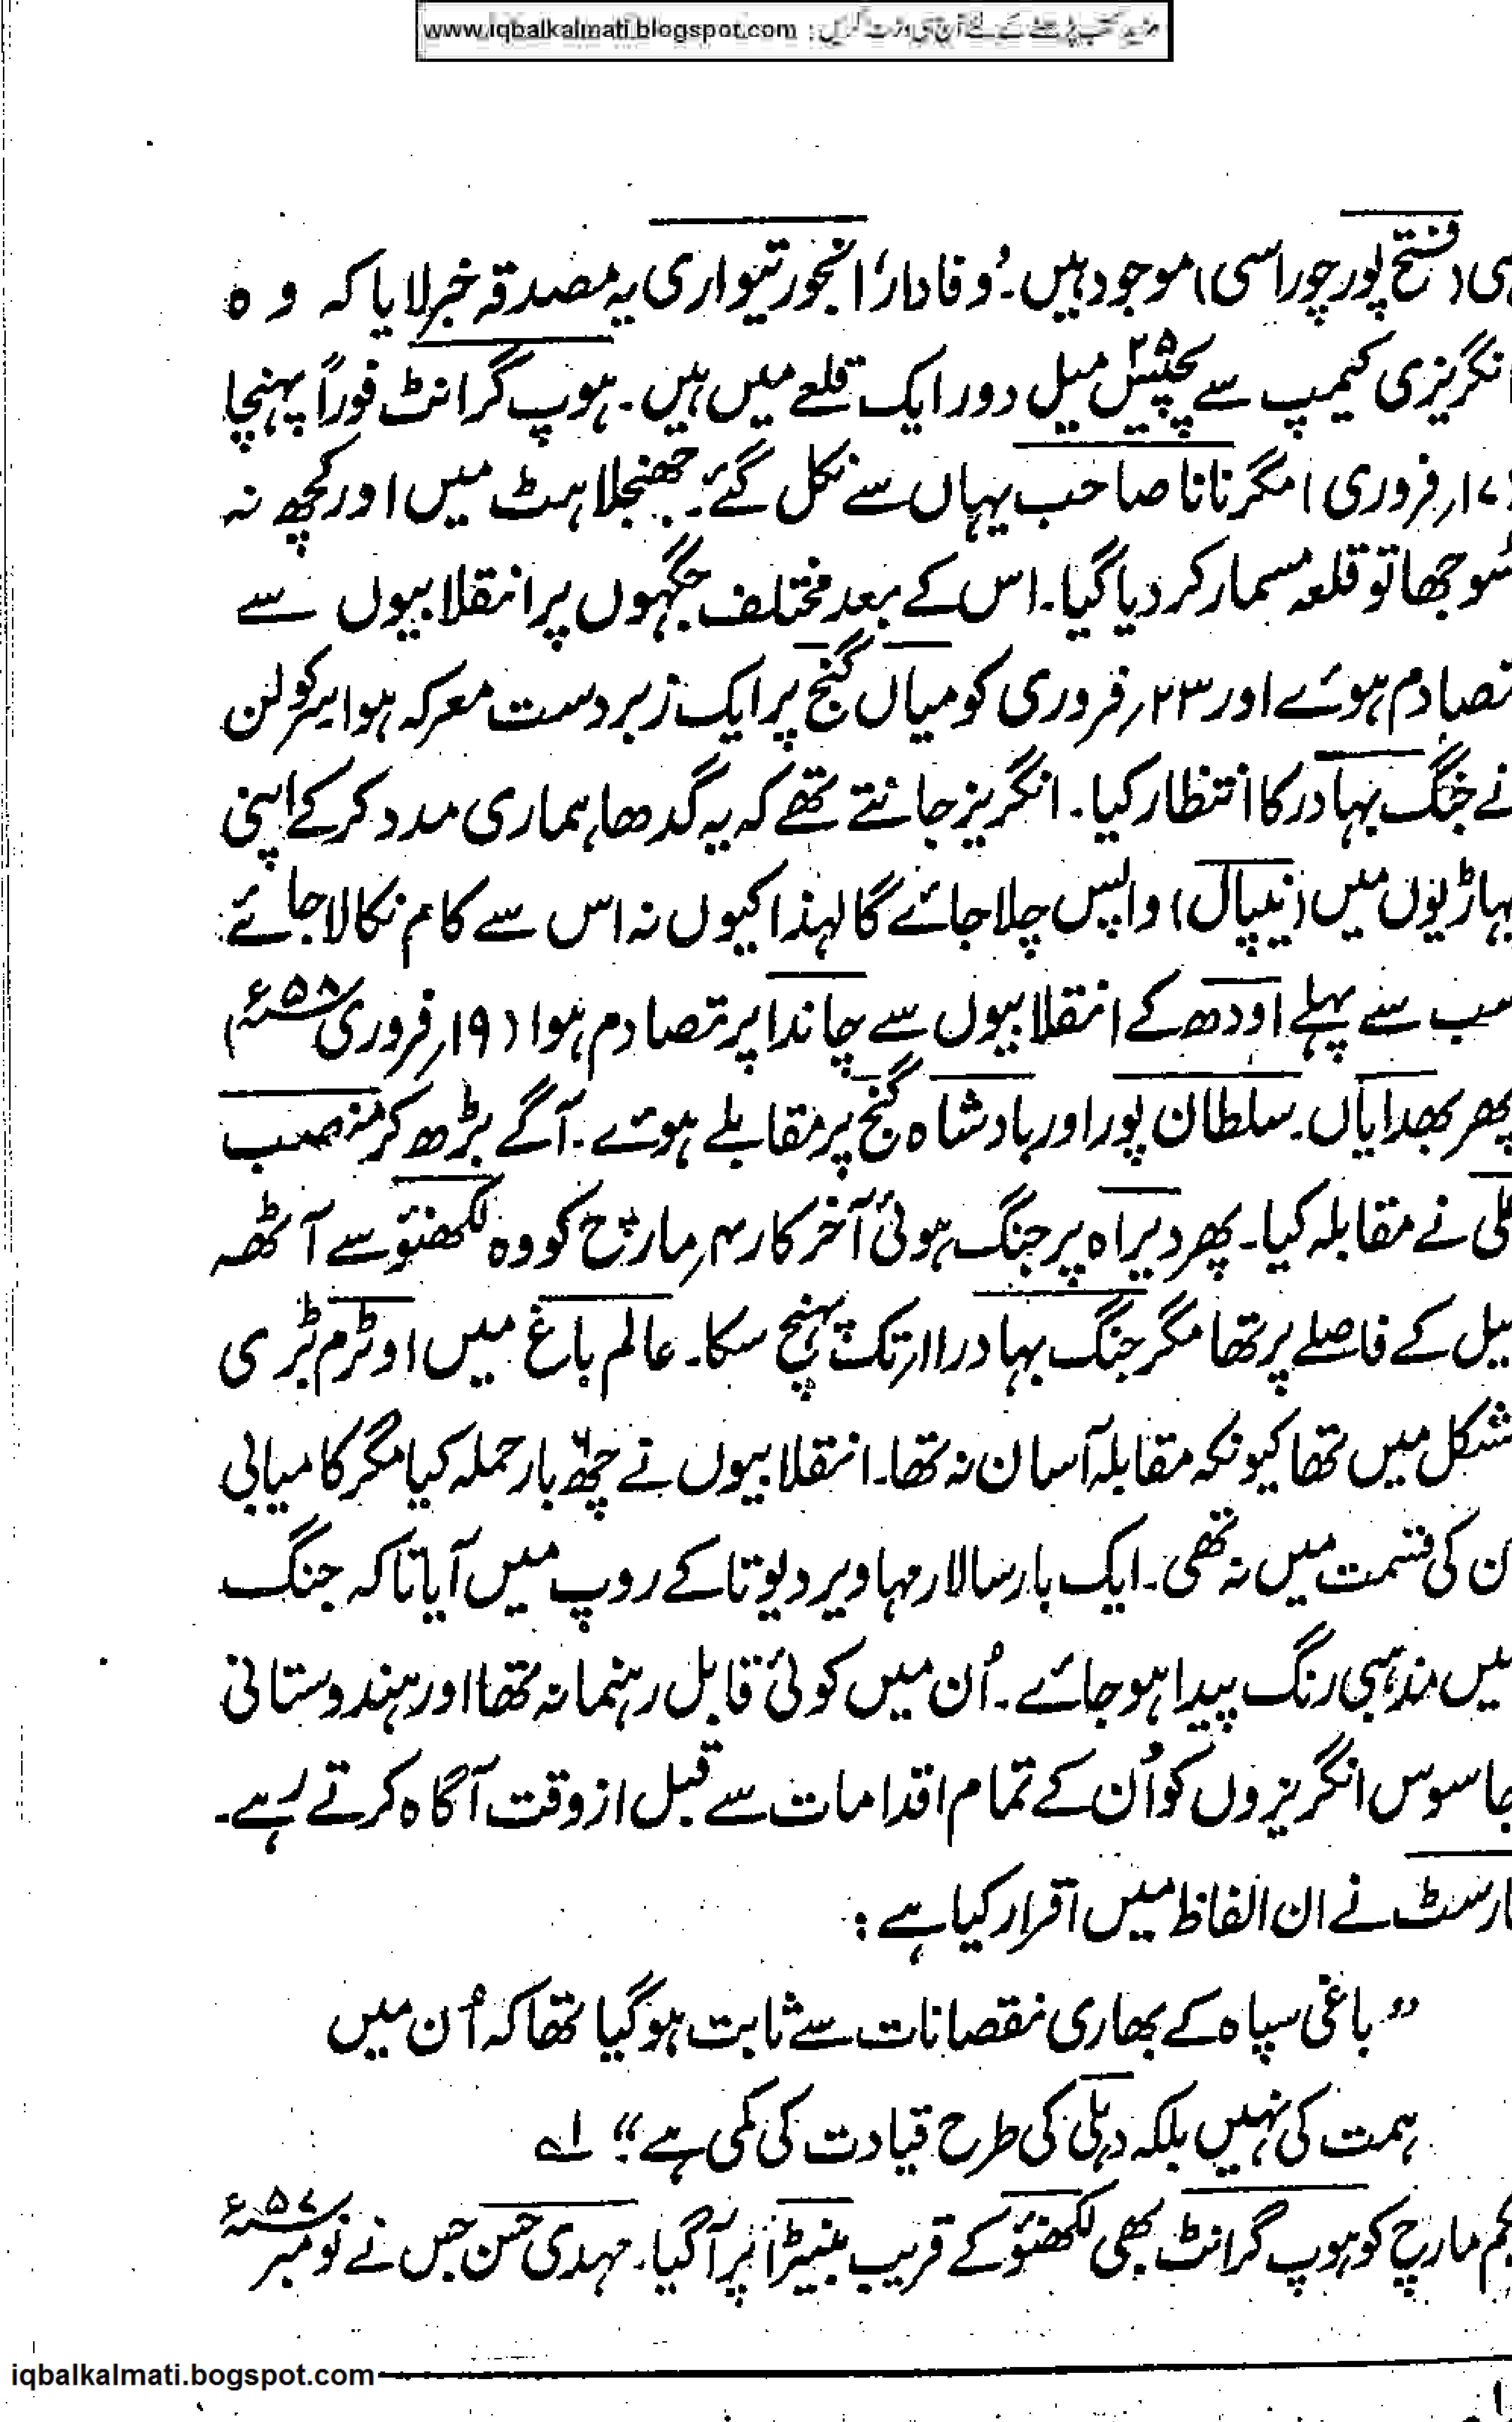 مزید کتب پڑھنے کے لئے آج ہی وزٹ کریں : www.iqbalkalmati.blogspot.com
سی (فتح پور چوراسی) موجود ہیں۔ 'وفادار' انجور تیواری یہ مصدقہ خبر لایا کہ وہ
انگریزی کیمپ سے پچیس ۲۵ میل دور ایک قلعے میں ہیں۔ ہوپ گرانٹ فوراً پہنچا
(۱۷ر فروری) مگر نانا صاحب یہاں سے نکل گئے۔ جھنجلاہٹ میں اور کچھ نہ
سُوجھا تو قلعہ مسمار کر دیا گیا۔ اس کے بعد مختلف جگہوں پر انقلابیوں سے
تصادم ہوئے اور ۲۳ر فروری کو میاں گنج پر ایک زبردست معرکہ ہوا سرکولن
نے جنگ بہادر کا انتظار کیا۔ انگریز جانتے تھے کہ یہ گدھا ہماری مدد کر کے اپنی
پہاڑیوں میں (نیپال) واپس چلا جائے گا لہذا کیوں نہ اس سے کام نکالا جائے
سب سے پہلے اودھ کے انقلابیوں سے چاندا پر تصادم ہوا (۱۹ر فروری ۵۸ء)
پھر بھدایاں۔ سلطان پور اور بادشاہ گنج پر مقابلے ہوئے۔ آگے بڑھ کر منصب
علی نے مقابلہ کیا۔ پھر دیراہ پر جنگ ہوئی آخر کار ۴ر مارچ کو وہ لکھنؤ سے آٹھ
میل کے فاصلے پر تھا مگر جنگ بہادر ۱۱ر تک پہنچ سکا۔ عالم باغ میں اوٹرم بڑی
مشکل میں تھا کیونکہ مقابلہ آسان نہ تھا۔ انقلابیوں نے چھ ۶ بار حملہ کیا مگر کامیابی
ان کی قسمت میں نہ تھی۔ ایک بار سالار مہاویر دیوتا کے روپ میں آیا تاکہ جنگ
میں مذہبی رنگ پیدا ہو جائے۔ اُن میں کوئی قابل رہنما نہ تھا اور ہندوستانی
جاسوس انگریزوں کو اُن کے تمام اقدامات سے قبل از وقت آگاہ کرتے رہے۔
فارسٹ نے ان الفاظ میں اقرار کیا ہے :
"باغی سپاہ کے بھاری نقصانات سے ثابت ہو گیا تھا کہ اُن میں
ہمت کی نہیں بلکہ دہلی کی طرح قیادت کی کمی ہے۔" ۱ے
یکم مارچ کو ہوپ گرانٹ بھی لکھنؤ کے قریب بنیڑا پر آ گیا۔ مہدی حسن جس نے نومبر ۵۷ء
iqbalkalmati.bogspot.com